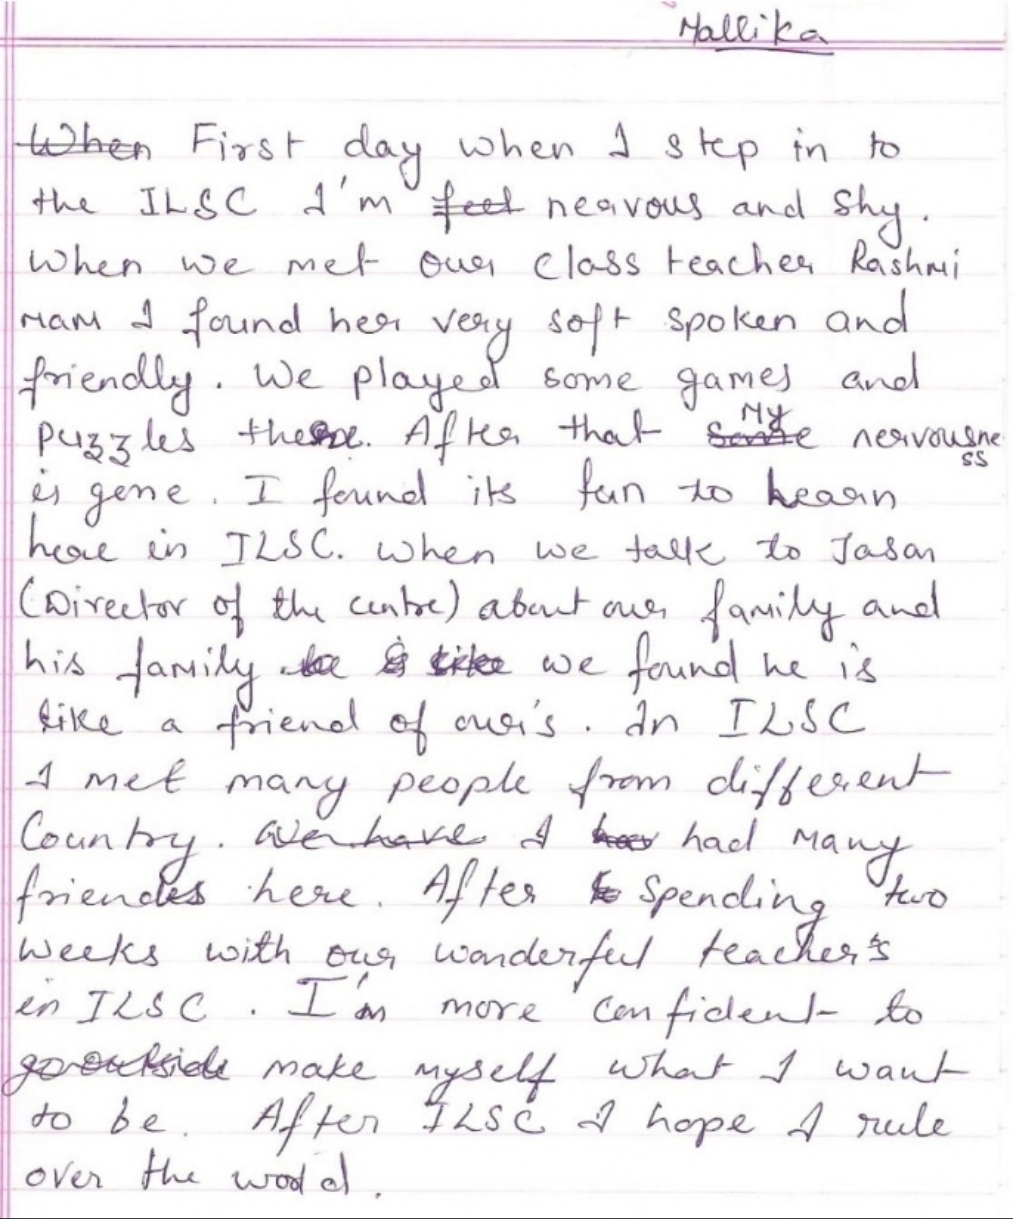 Mallika
When First day when I step in to
the ILSC I'm feel nervous and shy.
When we met our class teacher Rashmi
mam I found her very soft spoken and
friendly. We played some games and
puzzles there. After that My nervousne
ss
is gone. I found its fun to learn
here in ILSC. When we talk to Jason
(Director of the centre) about our family and
his family he is like we found he is
like a friend of our's. In ILSC
I met many people from different
Country. We have I had many
friends here. After spending two
weeks with our wonderful teacher's
in ILSC. I'm more confident to
go outside make myself what I want
to be. After ILSC I hope I rule
over the world.